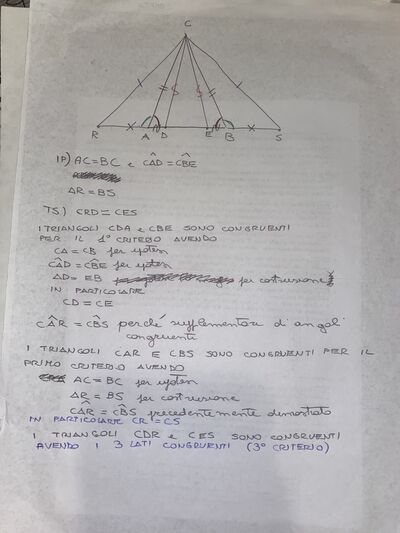 C
R A D E B S
IP) AC=BC e CÂD=CB̂E
AR=BS
TS) CRD≅CES
I TRIANGOLI CDA e CBE SONO CONGRUENTI
PER IL 1° CRITERIO AVENDO
CA=CB per ipotesi
CÂD=CB̂E per ipotesi
AD=EB per costruzione
IN PARTICOLARE
CD=CE
CÂR=CB̂S perché supplementari di angoli
congruenti
I TRIANGOLI CAR E CBS SONO CONGRUENTI PER IL
PRIMO CRITERIO AVENDO
AC=BC per ipotesi
AR=BS per costruzione
CÂR=CB̂S precedentemente dimostrato
IN PARTICOLARE CR=CS
I TRIANGOLI CDR e CES SONO CONGRUENTI
AVENDO I 3 LATI CONGRUENTI (3° CRITERIO)